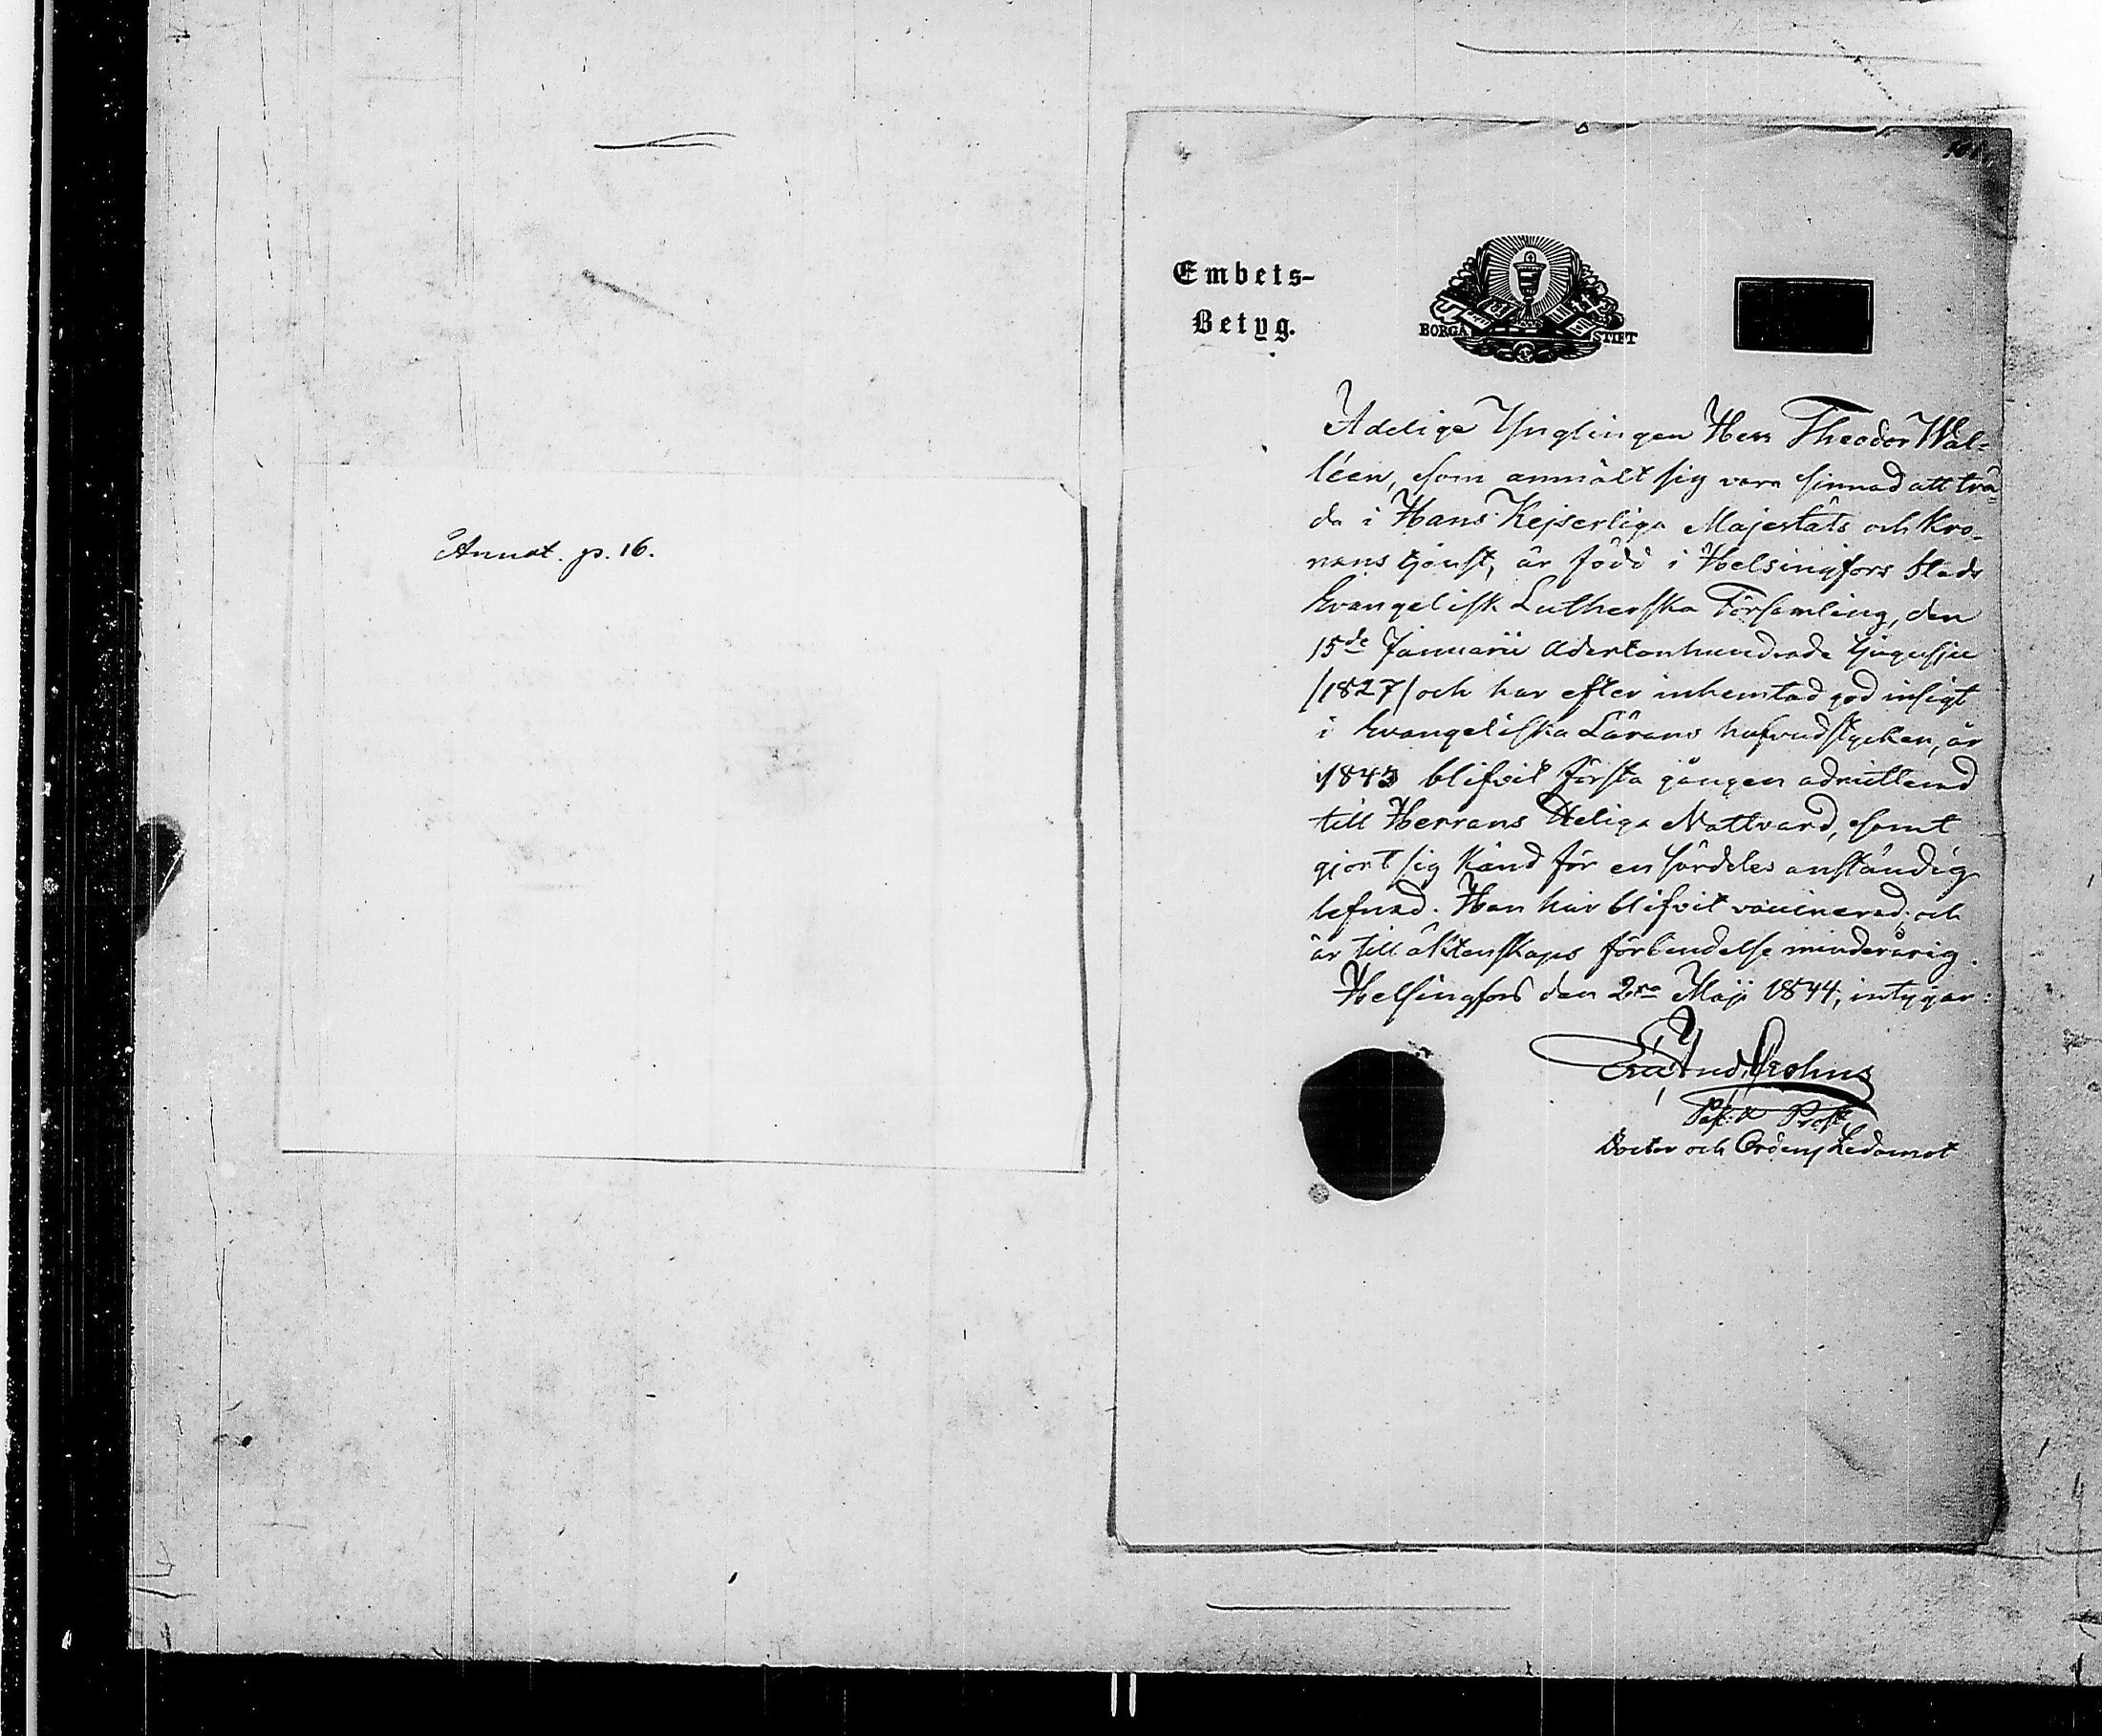 Annot. p. 16.
Embets-
Betyg.
BORGÅ STIFT
Adelige Ynglingen Herr Theodor Wal-
léen, som anmält sig vara sinnad att trä-
da i Hans Kejserliga Majestäts och Kro-
nans tjenst, är född i Helsingfors Stads
Evangelisk Lutherska Församling, den
15de Januarii Adertonhundrade tjugusju
/1827/ och har efter inhemtad god insigt
i Evangeliska Lärans hufvudstycken, år
1843 blifvit första gången admitterad
till Herrans Heliga Nattvard, samt
gjort sig känd för en särdeles anständig
lefnad. Han har blifvit vaccinerad, och
är till äktenskaps förbindelse minderårig.
Helsingfors den 2ra Maji 1844, intygar:
Crohns
Past. & Prost
Doctor och Ordens Ledamot